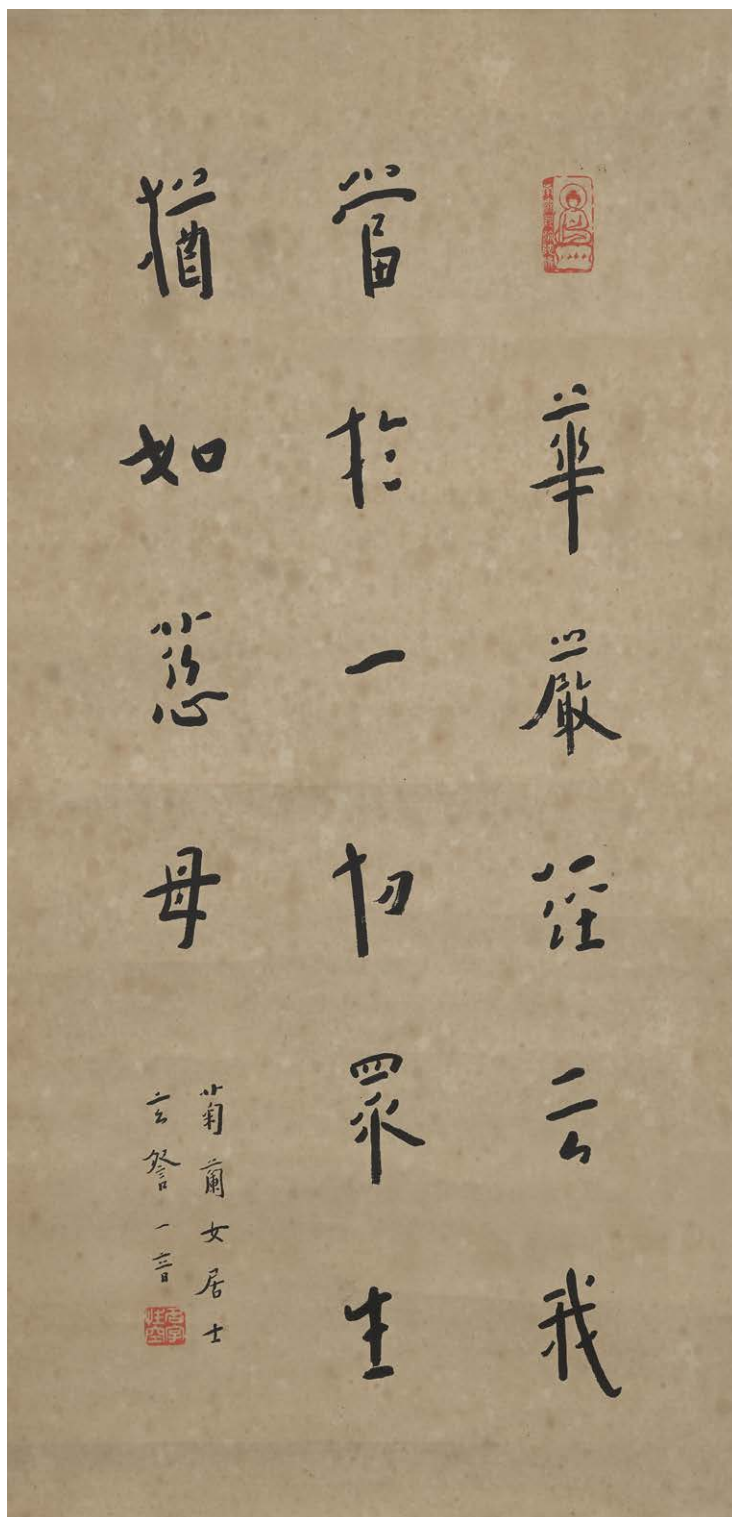 華嚴經云我
當於一切眾生
猶如慈母
菊蘭女居士
玄詧一音
名字性空